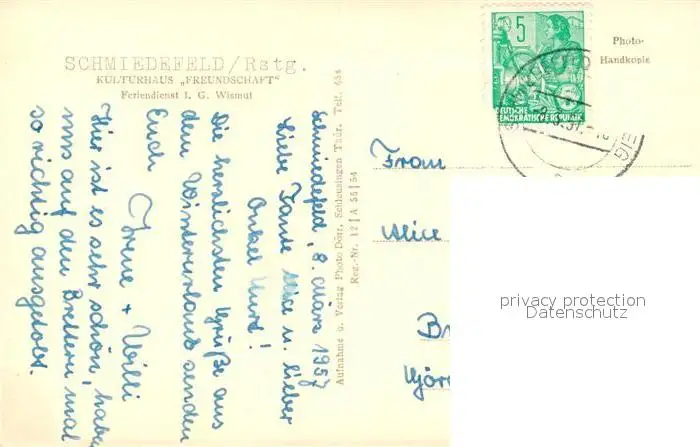 SCHMIEDEFELD/Rstg.
KULTURHAUS „FREUNDSCHAFT"
Feriendienst I. G. Wismut
Schmiedefeld, 8. März 1957
Liebe Tante Alice u. lieber
Onkel Kurt!
Die herzlichsten Grüße aus
dem Winterurlaub senden
Euch
Irene + Willi
Hier ist es sehr schön, habe
uns auf den Brettern mal
so richtig ausgetobt.
Aufnahme u. Verlag Photo Dörr, Schleusingen Thür. Telf. 684
Reg.-Nr. 12 | A 55 | 54
5
DEUTSCHE
DEMOKRATISCHE REPUBLIK
Photo-
Handkopie
Frau
Alice
privacy protection
Datenschutz